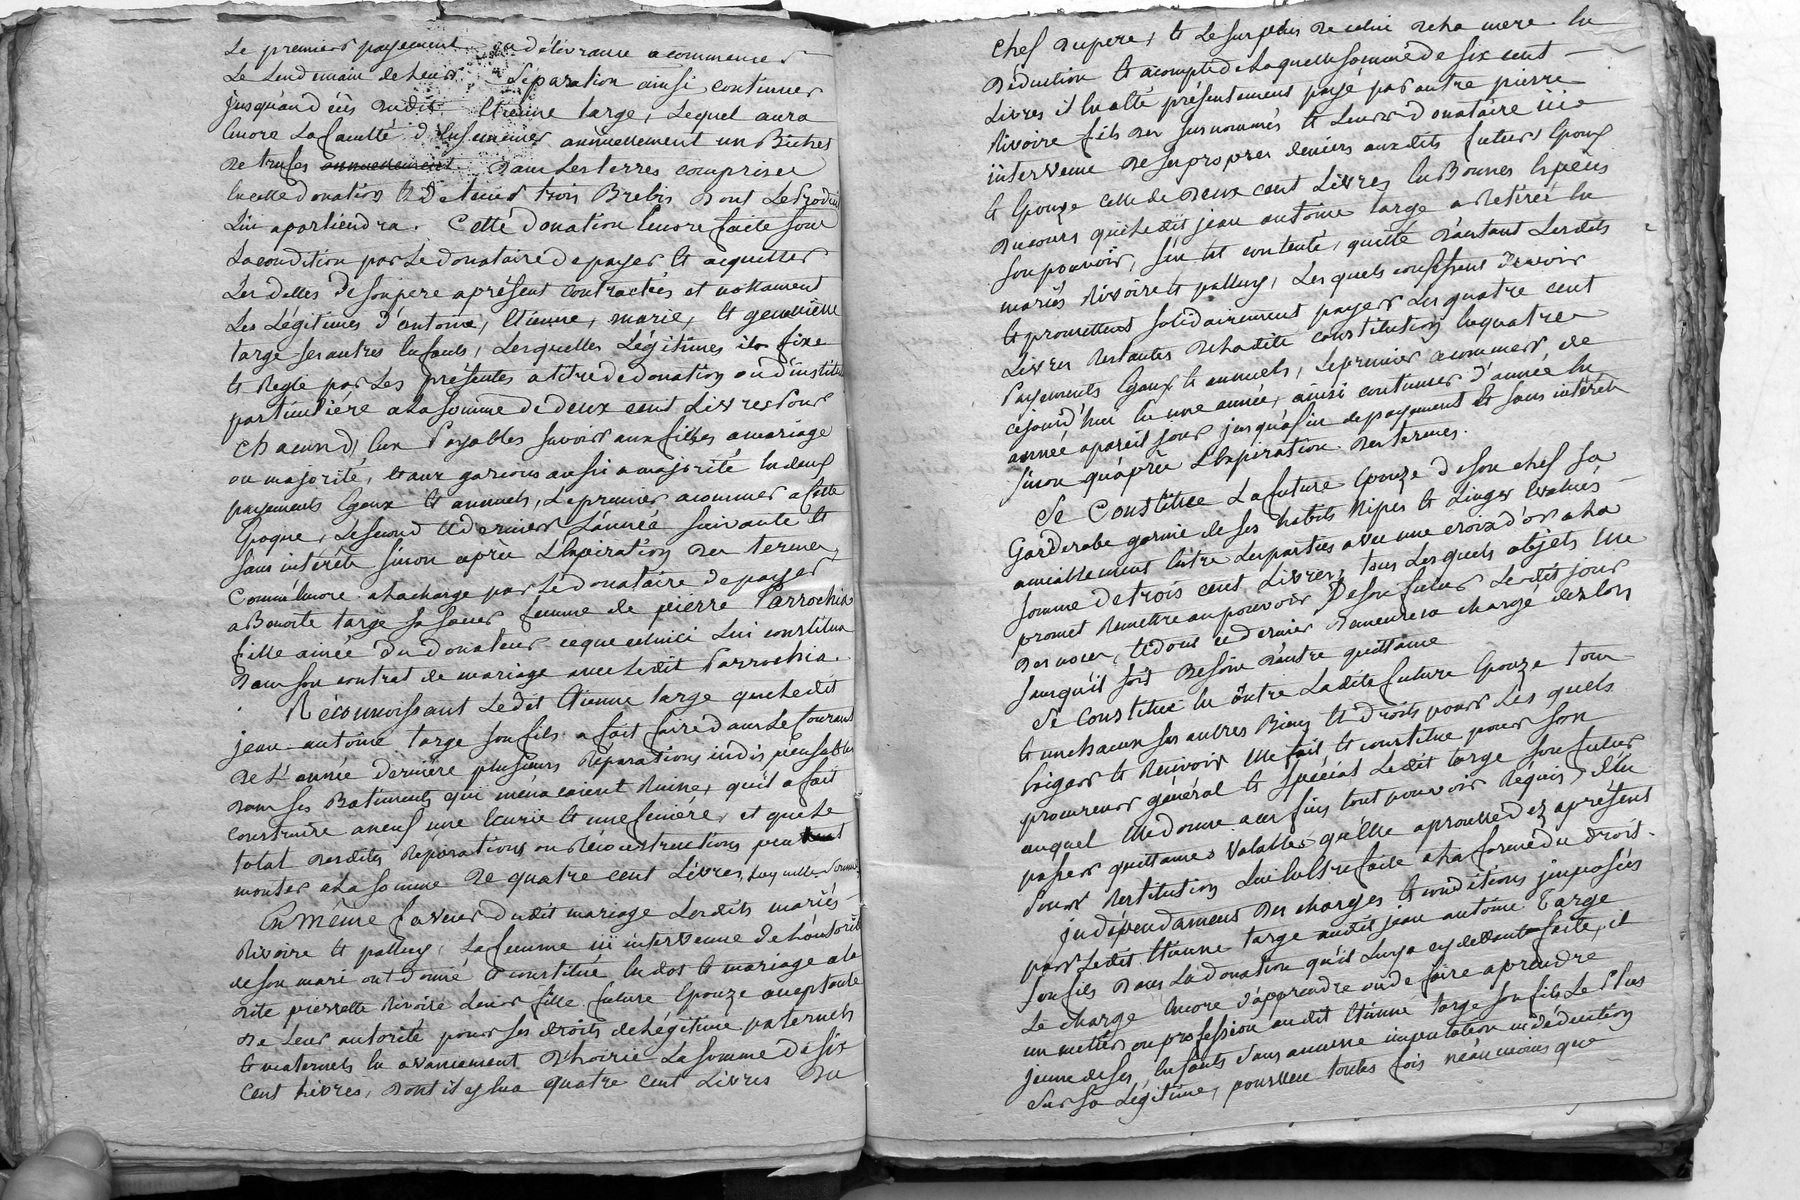 Le premier payement ou délivrance a commencer
Le Lendemain de leur Séparation ainsi continuer
jusquaud écés dudit Etienne targe, Lequel aura
Encore La faculté d'Ensemencer annuellement un Bichet
de trufes annuellement dans Les terres comprises
En cette donation Et de tenir trois Brebis dont Le Produit
Lui apartiendra. Cette donation Encore faite sous
La condition par Le donataire de payer Et acquitter
Les dettes de son pere aprésent contractées et nottament
Les Légitimes d'antoine, Etienne, marie, Et genevieve
targe ses autres Enfants, Lesquelles Légitimes il fixe
Et Regle par Les présentes a titre de donation ou d'institution
particuliére a La somme de deux cent Livres Pour
chacun d'Eux Payables savoir aux filles a mariage
ou majorité, Et aux garcons aussi a majorité En deux
payements Egaux Et annuels, Le premier acommer a cette
Epoque, Le second Et dernier L'année suivante Et
sans intérêts sinon après L'Expiration des termes,
Comme Encore a la charge par Le donataire de payer
a Benoite targe sa sœur femme de pierre Parrochia
fille ainée du donateur ce que celuici Lui constitua
dans son contrat de mariage avec Ledit Parrochia.
Réconnoissant Ledit Etienne targe que Ledit
jean antoine targe son fils a fait faire dans Le Courant
de L'année derniere plusieurs Réparations indispensables
dans ses Batiments qui ménacaient Ruine, qu'il a fait
construire aneuf une Ecurie Et une feniére, et que Le
total desdites Réparations ou Réconstructions peut
monter a La somme de quatre cent Livres, Laquelle somme
En même faveur dudit mariage Lesdits mariés
Rivoire Et palluy, La femme ici intervenue de L'autorité
de son mari ont donné Et constitué En dot Et mariage a la
dite pierrette Rivoire Leur fille future Epouze acceptante
de Leur autorité pour ses droits de Légitime paternels
Et maternels En avancement d'hoirie La somme de six
cent Livres, dont il y En a quatre cent Livres du
chef du pere, Et Le surplus de celui de la mere. En
déduction Et acompte de Laquelle somme de six cent
Livres il En a Eté présentement payé par autre pierre
Rivoire fils des susnommés Et Leur donataire ici
intervenu de ses propres deniers auxdits futurs Epoux
Et Epouze celle de deux cent Livres En Bonnes Espèces
du cours que Ledit jean antoine targe a Retirée En
son pouvoir, s'en Est contenté, quitte d'autant Lesdits
mariés Rivoire Et palluy, Lesquels confessent devoir
Et promettent solidairement payer Les quatre cent
Livres Restantes de Ladite constitution En quatre
Payements Egaux Et annuels, Le premier a commer, de
cejourd'hui En une année, ainsi continuer d'année En
année apareil jour jusqu'afin de payement Et sans intérêts
sinon qu'après L'Expiration des termes.
Se Constitue La future Epouze de son chef sa
Garderobe garnie de ses habits Nipes Et Linges Evalués
amiablement Entre Les parties avec une croix d'or a La
somme de trois cent Livres, tous Lesquels objets Elle
promet Remettre au pouvoir de son futur Ledit jour
des noces, Et dont ce dernier demeurera chargé dez Lors
sans qu'il soit Besoin d'autre quittance
Se Constitue En outre Ladite future Epouze tous
Et un chacun ses autres Biens Et droits pour Lesquels
Exiger Et Recevoir Elle fait Et constitue pour son
procureur général Et spécial Ledit targe son futur
auquel Elle donne aux fins tout pouvoir Réquis, d'En
passer quittances Valables qu'Elle aprouve dez aprésent
Pour Restitution Lui En Estre faite a La forme du droit.
jndépendament des charges Et conditions jmposées
par Ledit Etienne targe audit jean antoine Targe
son fils dans La donation qu'il Luy a cy devant faite, il
Le charge Encore d'apprendre ou de faire aprendre
un metier ou profession audit Etienne targe son fils Le Plus
jeune de ses Enfants sans aucune imputation ni déduction
sur sa Légitime, pourveu toutes fois néanmoins que